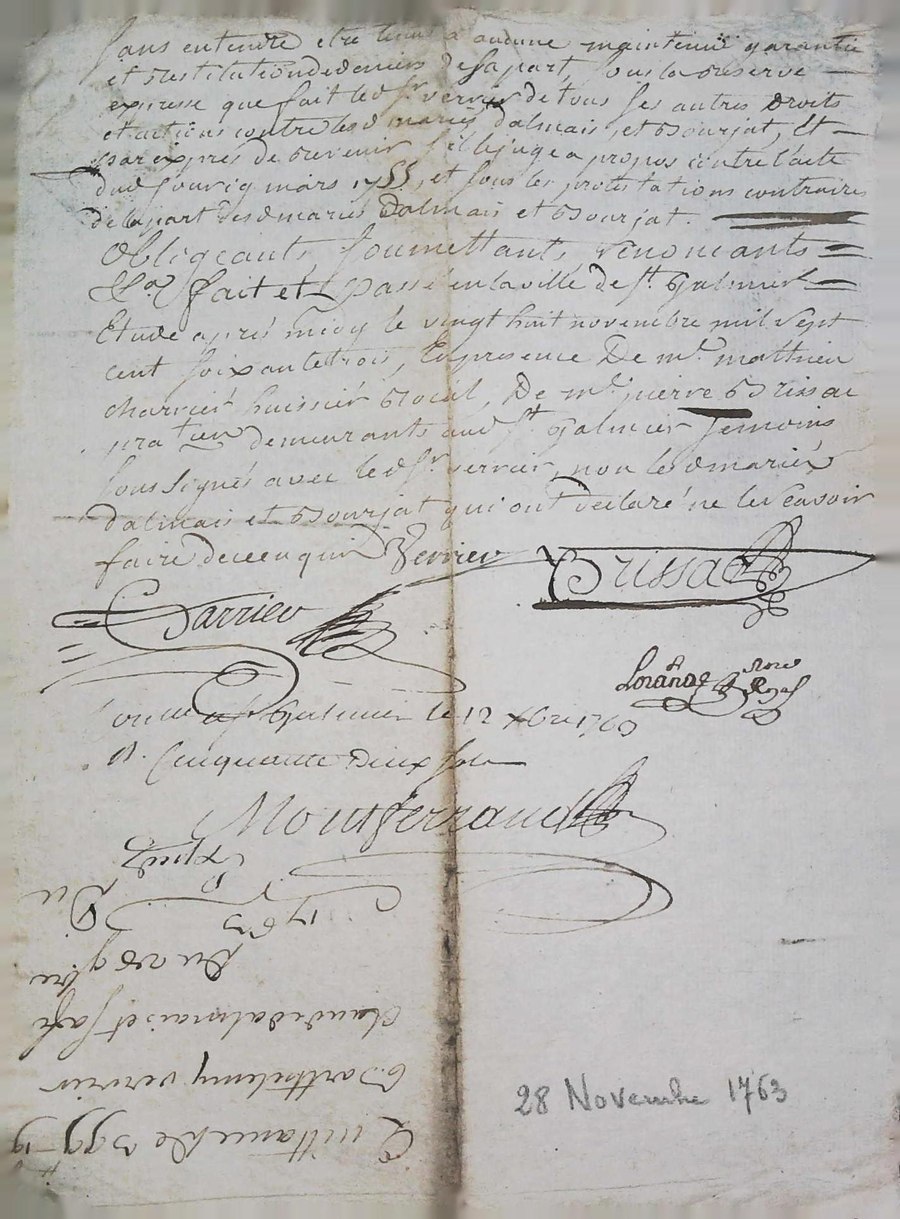 sans entendre etre tenu a aucune maintenüe garantie
et restitution de deniers de sa part, sous la reserve
expresse que fait led sr. verrier de tous ses autres droits
et actions contre lesd mariés dalmais et Bourjat, et
par exprés de revenir s'il le juge a propos contre l'acte
dud jour cinq mars 1755, et sous les protestations contraires
de la part desd mariés dalmais et Bourjat.
obligeants soumettants, renoncants
&a. fait et passé en la ville de st. galmier
Etude aprés midy le vingt huit novembre mil sept
cent soixante trois, En presence De me. matthieu
charrier huissier Roial, De me. pierre Brissac
praticien demeurants aud st. galmier temoins
sous signés avec led sr. verrier, non lesd mariés
dalmais et Bourjat qui ont declaré ne le scavoir
faire de ce enquis Verrier
Brissac
Charrier
nore Royal
st Galmier le 12 Xbre 1763
R. Cinquante Deux sols
Montferrand
Quittance de 399
Barthelemy verrier
Claude dalmais et sa fe
Du 28 9bre
1763
Expiée
28 Novembre 1763